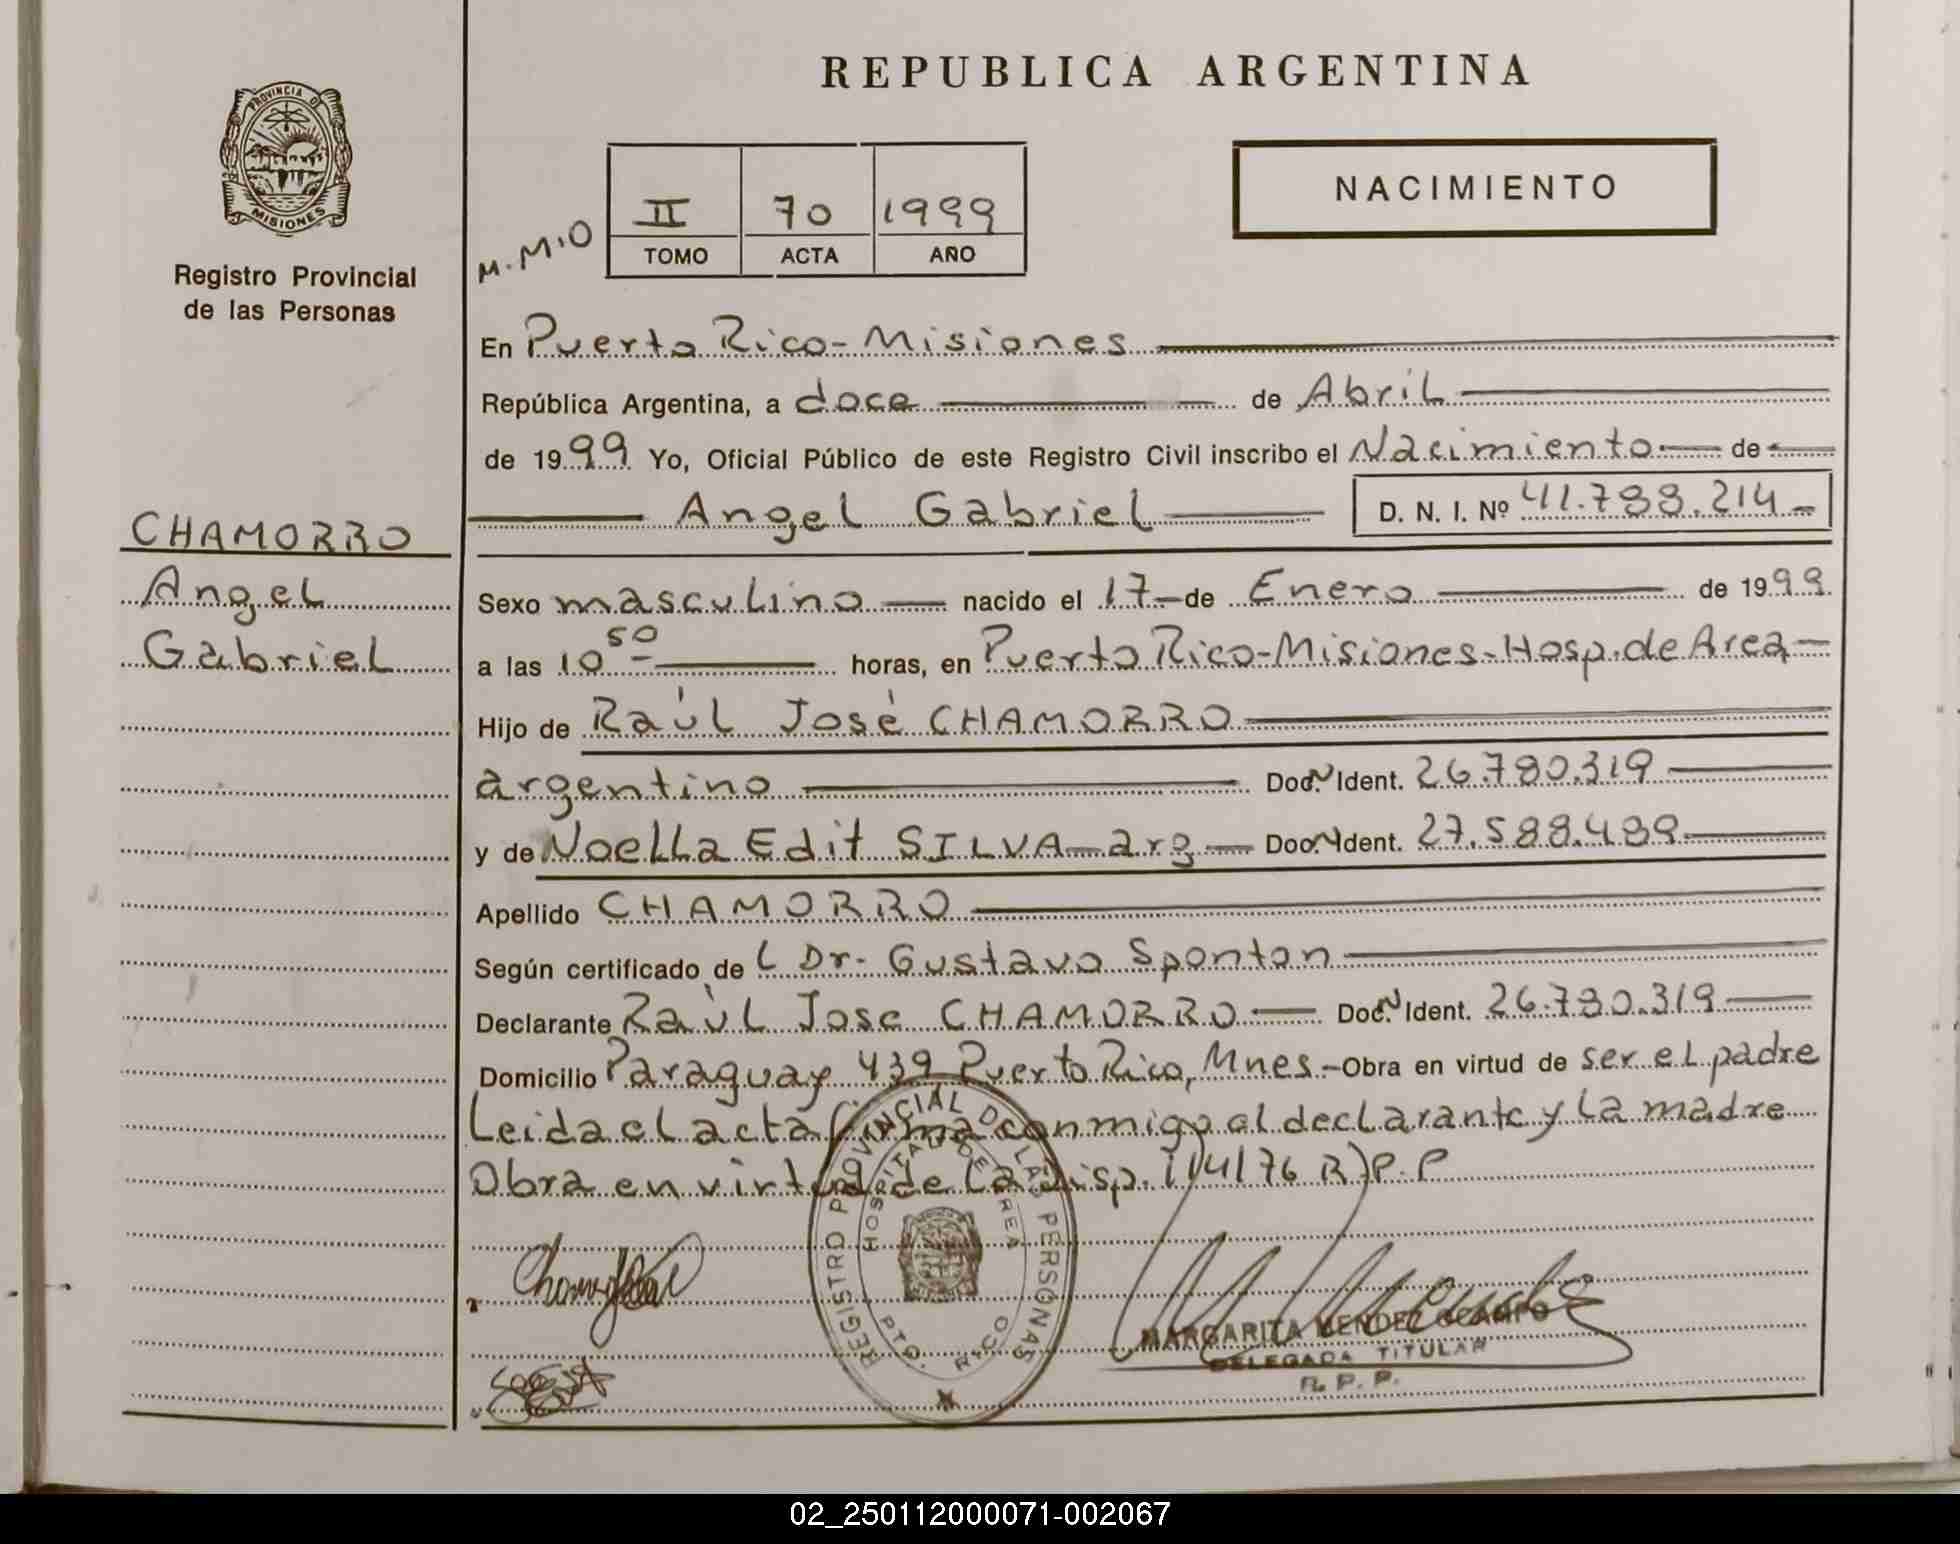 REPUBLICA ARGENTINA
PROVINCIA DE
MISIONES
Registro Provincial
de las Personas
NACIMIENTO
M.M.O
II 70 1999
TOMO ACTA AÑO
En Puerto Rico - Misiones
República Argentina, a doce de Abril
de 1999 Yo, Oficial Público de este Registro Civil inscribo el Nacimiento de
Angel Gabriel D. N. I. Nº 41.788.214
CHAMORRO
Angel
Gabriel
Sexo masculino nacido el 17 de Enero de 1999
a las 10 50 horas, en Puerto Rico-Misiones-Hosp. de Area
Hijo de Raúl José CHAMORRO
argentino Doc. Ident. 26.780.319
y de Noella Edit SILVA - arg Doc. Ident. 27.588.489
Apellido CHAMORRO
Según certificado de L Dr. Gustavo Sponton
Declarante Raúl Jose CHAMORRO Doc. Ident. 26.780.319
Domicilio Paraguay 439 Puerto Rico, Mnes. - Obra en virtud de ser el padre
Leida el acta firma conmigo el declarante y La madre
Obra en virtud de La Disp. 114/76 R)P.P
REGISTRO PROVINCIAL DE LAS PERSONAS
HOSPITAL DE AREA
PTO. RICO
MARGARITA MENDEZ OCAMPO
DELEGADA TITULAR
R. P. P.
02_250112000071-002067